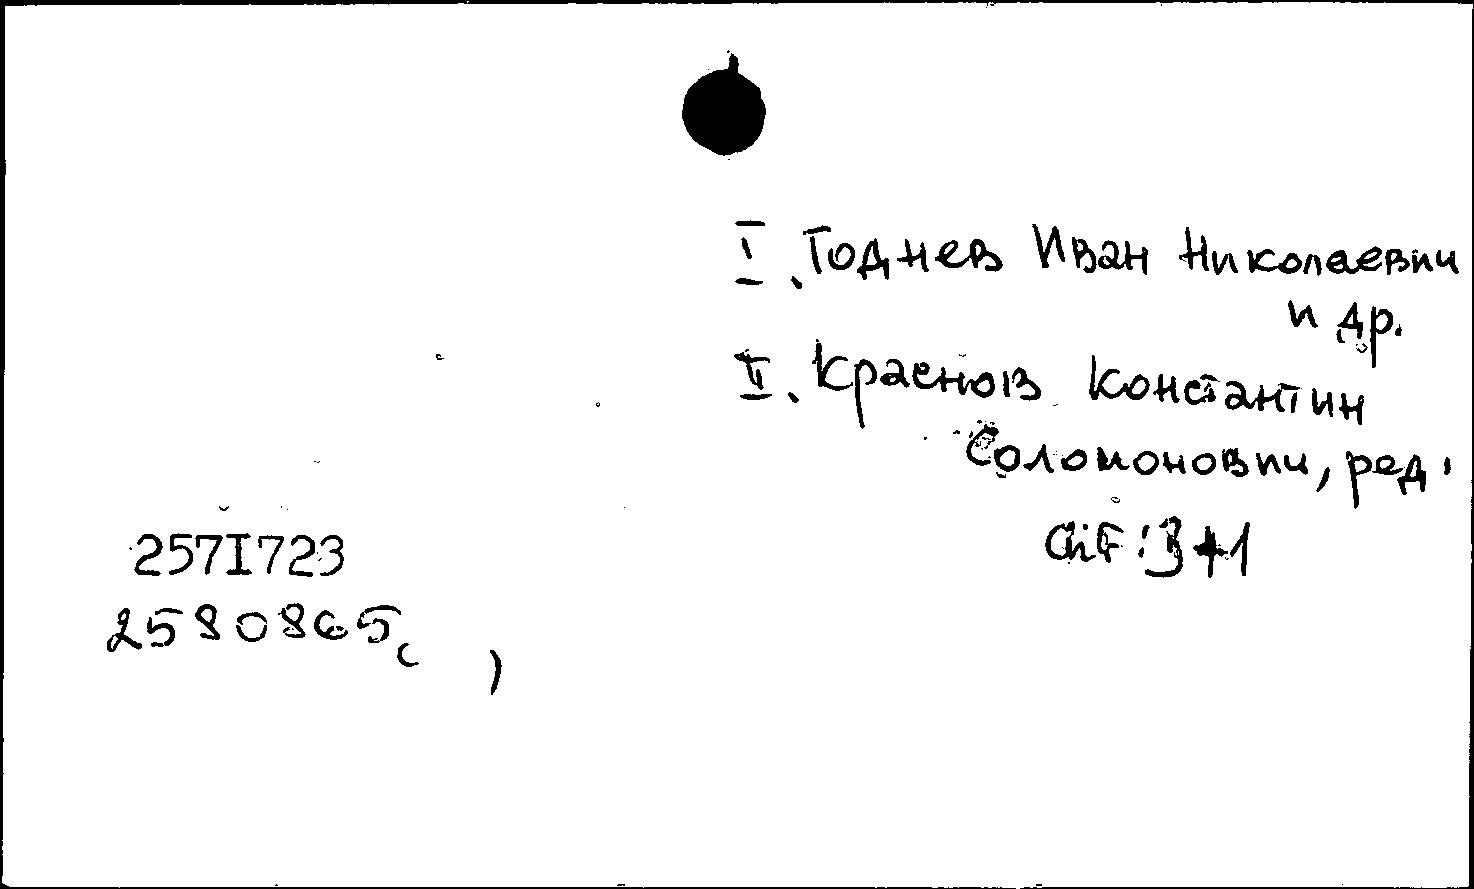 I. Годнев Иван Николаевич
и др.
II. Краснов Константин
Соломонович, ред.
257I723
2580865